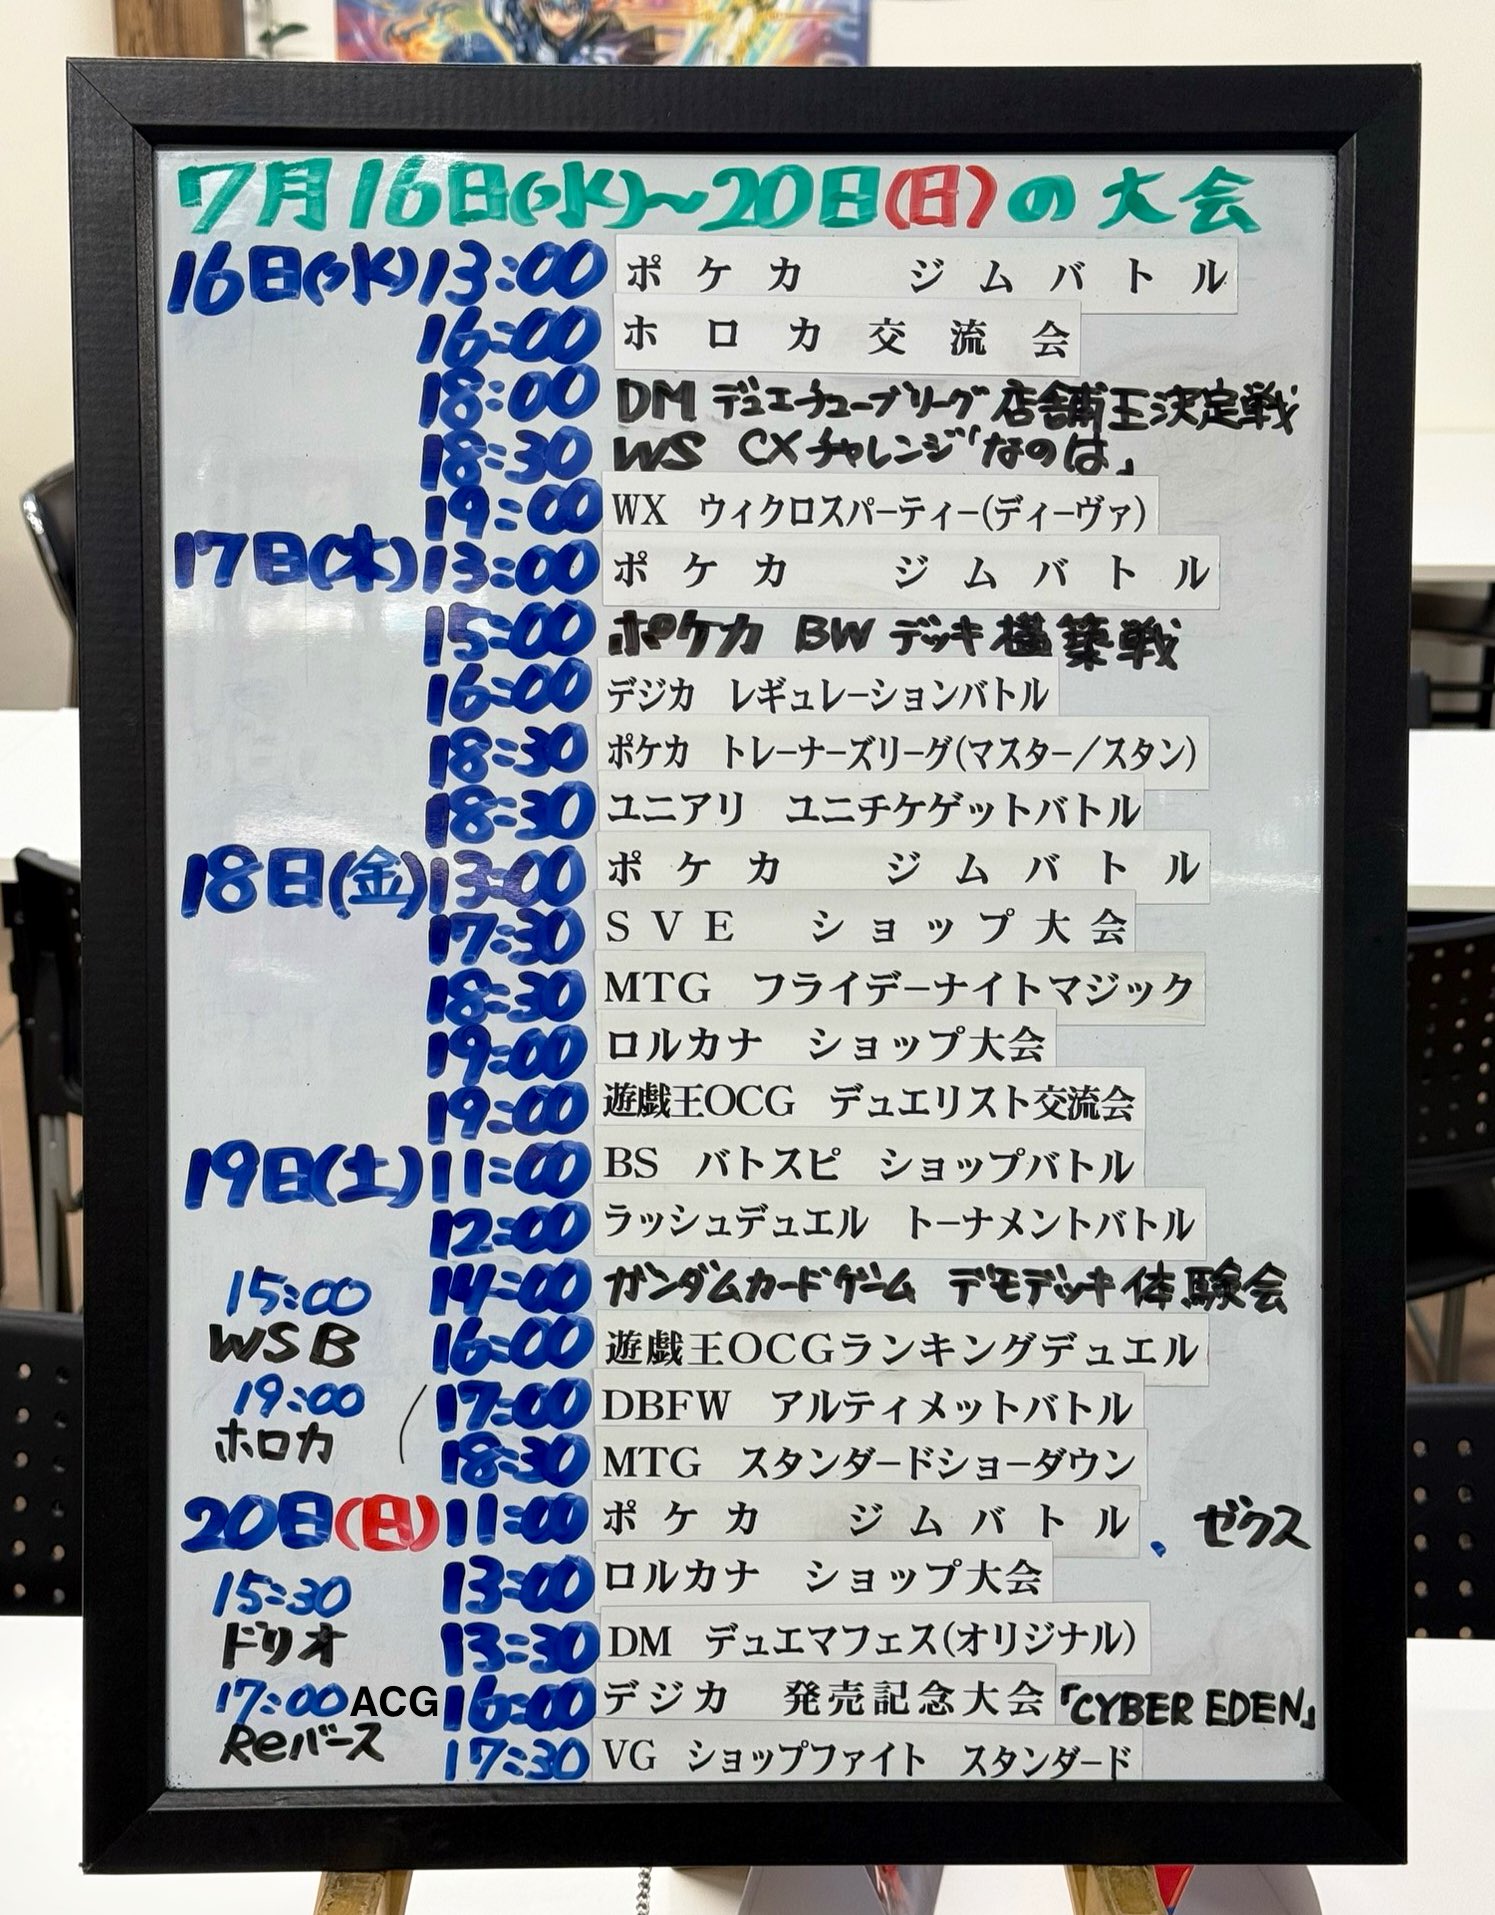 7月16日(水)~20日(日)の大会
16日(水)13:00 ポケカ ジムバトル
16:00 ホロカ交流会
18:00 DM デュエチューブリーグ 店舗王決定戦
18:30 WS CXチャレンジ「なのは」
19:00 WX ウィクロスパーティー(ディーヴァ)
17日(木)13:00 ポケカ ジムバトル
15:00 ポケカ BWデッキ構築戦
16:00 デジカ レギュレーションバトル
18:30 ポケカ トレーナーズリーグ(マスター/スタン)
18:30 ユニアリ ユニチケゲットバトル
18日(金)13:00 ポケカ ジムバトル
17:30 SVE ショップ大会
18:30 MTG フライデーナイトマジック
19:00 ロルカナ ショップ大会
19:00 遊戯王OCG デュエリスト交流会
19日(土)11:00 BS バトスピ ショップバトル
12:00 ラッシュデュエル トーナメントバトル
14:00 ガンダムカードゲーム デモデッキ体験会
15:00
WSB
16:00 遊戯王OCGランキングデュエル
19:00
ホロカ
17:00 DBFW アルティメットバトル
18:30 MTG スタンダードショーダウン
20日(日)11:00 ポケカ ジムバトル、ゼクス
13:00 ロルカナ ショップ大会
15:30
ドリオ
13:30 DM デュエマフェス(オリジナル)
17:00 ACG
Reバース
16:00 デジカ 発売記念大会「CYBER EDEN」
17:30 VG ショップファイト スタンダード